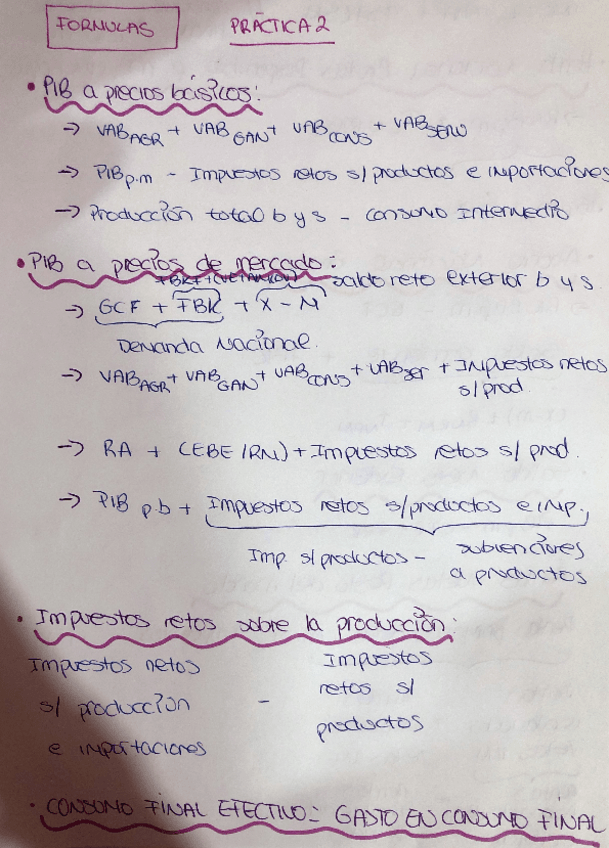 FORMULAS PRÁCTICA 2
• PIB a precios básicos:
→ VAB AGR + VAB GAN + VAB CONS + VAB SERV
→ PIB p.m - Impuestos netos s/ productos e importaciones
→ Producción total b y s - consumo intermedio
• PIB a precios de mercado:
saldo neto exterior b y s.
→ GCF + FBK + X - M
Demanda Nacional.
→ VAB AGR + VAB GAN + VAB CONS + VAB SER + Impuestos netos
s/ prod.
→ RA + (EBE/RM) + Impuestos netos s/ prod.
→ PIB p.b + Impuestos netos s/productos e imp.
Imp. s/ productos - subvenciones
a productos
• Impuestos netos sobre la producción:
Impuestos netos
s/ producción
e importaciones
-
Impuestos
netos s/
productos
• CONSUMO FINAL EFECTIVO = GASTO EN CONSUMO FINAL